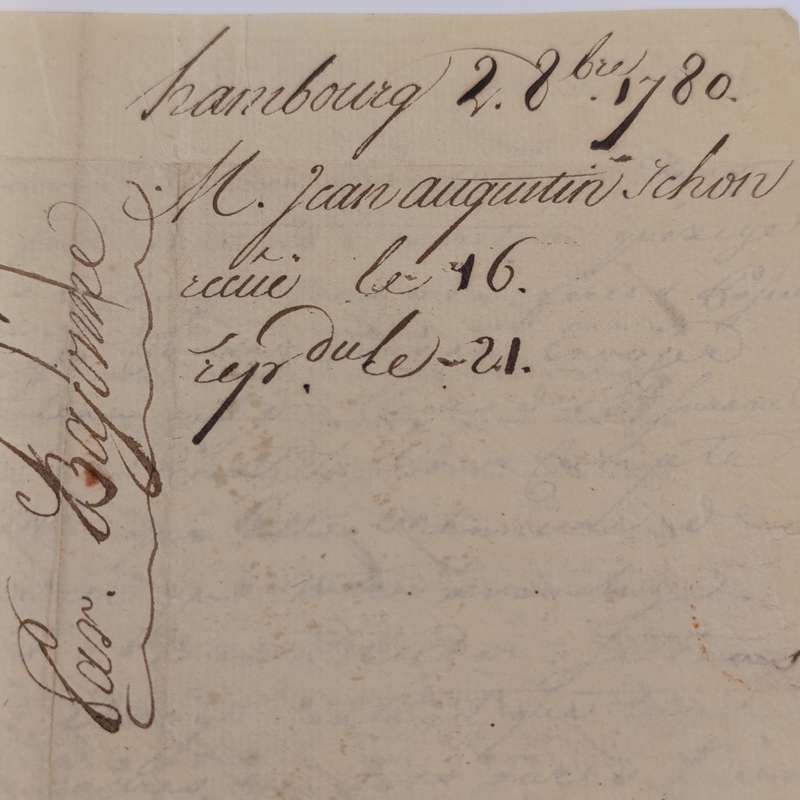 hambourg 2. 8bre. 1780.
M. Jean augustin schon
recüe le 16.
rep.du le 21.
Par. Bajonne